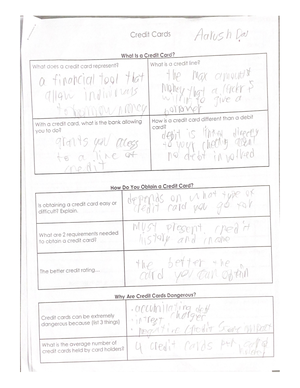 Credit Cards
What Is a Credit Card?
What does a credit card represent?
a financial tool that
allow individuals
to borrow money
What is a credit line?
the max amount
money that a lender is
willing to give a
With a credit card, what is the bank allowing
you to do?
grants you access
to a line of
credit
How is a credit card different than a debit
card?
debit is
to your
no debt involved
How Do You Obtain a Credit Card?
Is obtaining a credit card easy or
difficult? Explain.
depends on what type of
credit card you go for
What are 2 requirements needed
to obtain a credit card?
must present credit
history and income
The better credit rating…
the better the
card you can obtain
Why Are Credit Cards Dangerous?
Credit cards can be extremely
dangerous because (list 3 things)
- accumulating
- interest
-
What is the average number of
credit cards held by card holders?
4 credit cards per